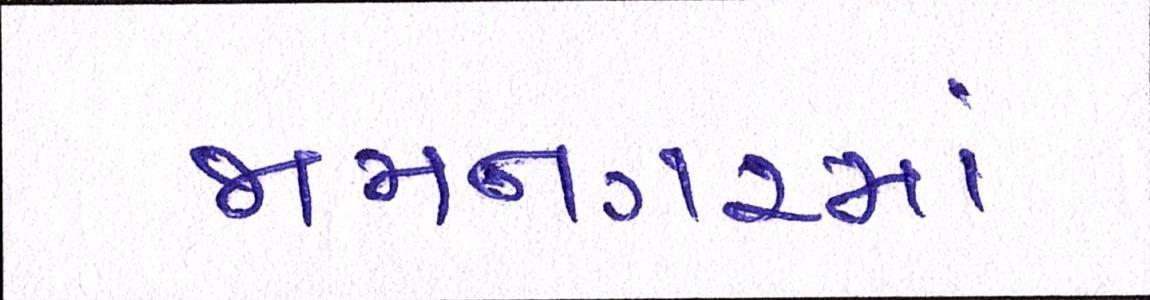 જામનગરમાં